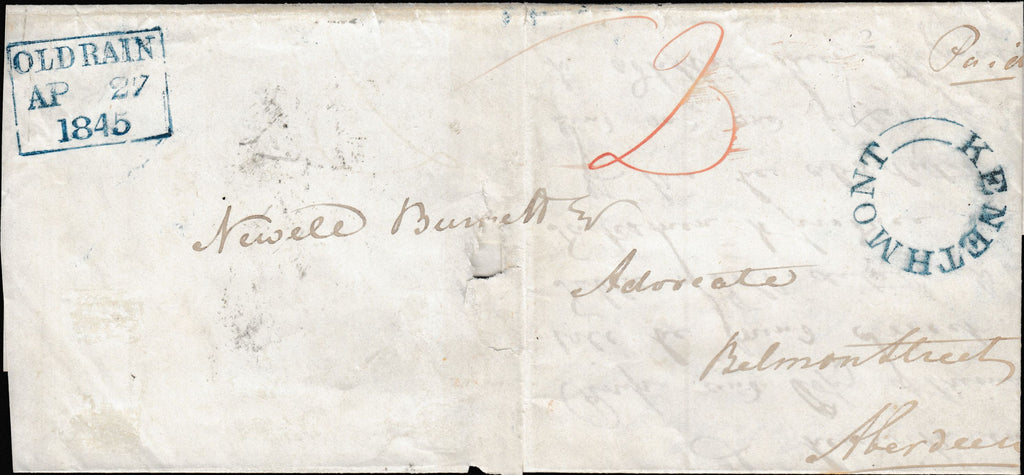 OLD RAIN
AP 27
1845
Paid
KENETHMONT
Newell Burnett Esqr
Advocate
Belmont Street
Aberdeen